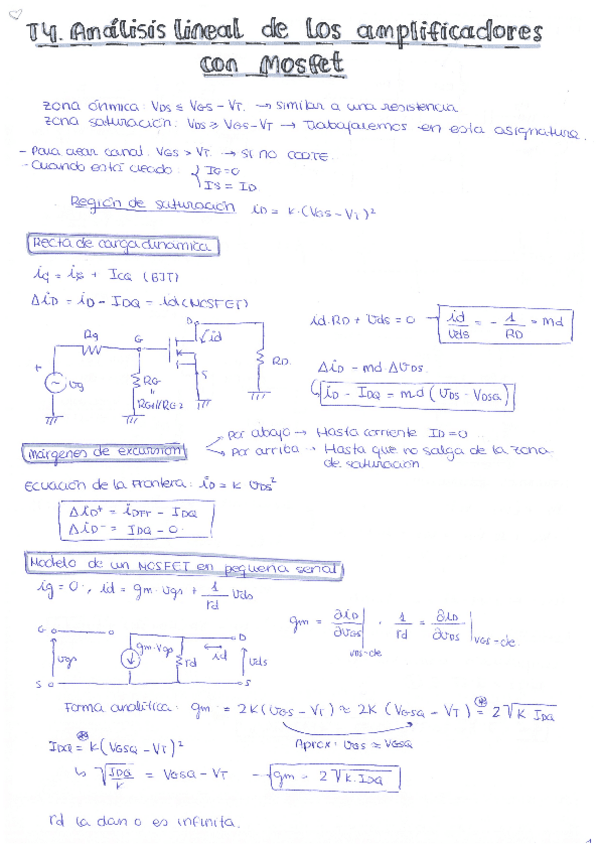 T4. Análisis lineal de los amplificadores
con Mosfet
zona óhmica: VDS ≤ VGS - VT. → similar a una resistencia
zona saturación: VDS ≥ VGS - VT → Trabajaremos en esta asignatura.
- Para crear canal: VGS > VT. → SI NO CORTE.
- Cuando está creado: { IG = 0
IS = ID
. Región de saturación iD = K·(VGS - VT)²
Recta de carga dinamica
+ ICQ (BJT)
ΔiD = iD - IDQ = id (MOSFET)
id·RD + vds = 0 → id/vds = - 1/RD = md
ΔiD = md ΔVDS
iD - IDQ = md (VDS - VDSQ)
Rg
G
D
id
RD
S
RG
"
RG1//RG2
+
vg
Márgenes de excursión
→ Por abajo → Hasta corriente ID = 0
→ Por arriba → Hasta que no salga de la zona
de saturación
Ecuación de la frontera: iD = K VDS²
ΔiD⁺ = - IDQ
ΔiD⁻ = IDQ - 0
Modelo de un MOSFET en pequeña señal
ig = 0 , id = gm·vgs + 1/rd vds
gm = ∂iD/∂VGS | vDS-cte · 1/rd = ∂iD/∂vDS | vGS-cte
G
D
vgs
gm·vgs
rd
id
vds
S
S
Forma analítica: gm = 2K(VGS - VT) ≈ 2K (VGSQ - VT) (*) = 2√K IDQ
Aprox: VGS ≈ VGSQ
IDQ (*) = K(VGSQ - VT)²
↳ √IDQ/K = VGSQ - VT → gm = 2√K·IDQ
rd la dan o es infinita.